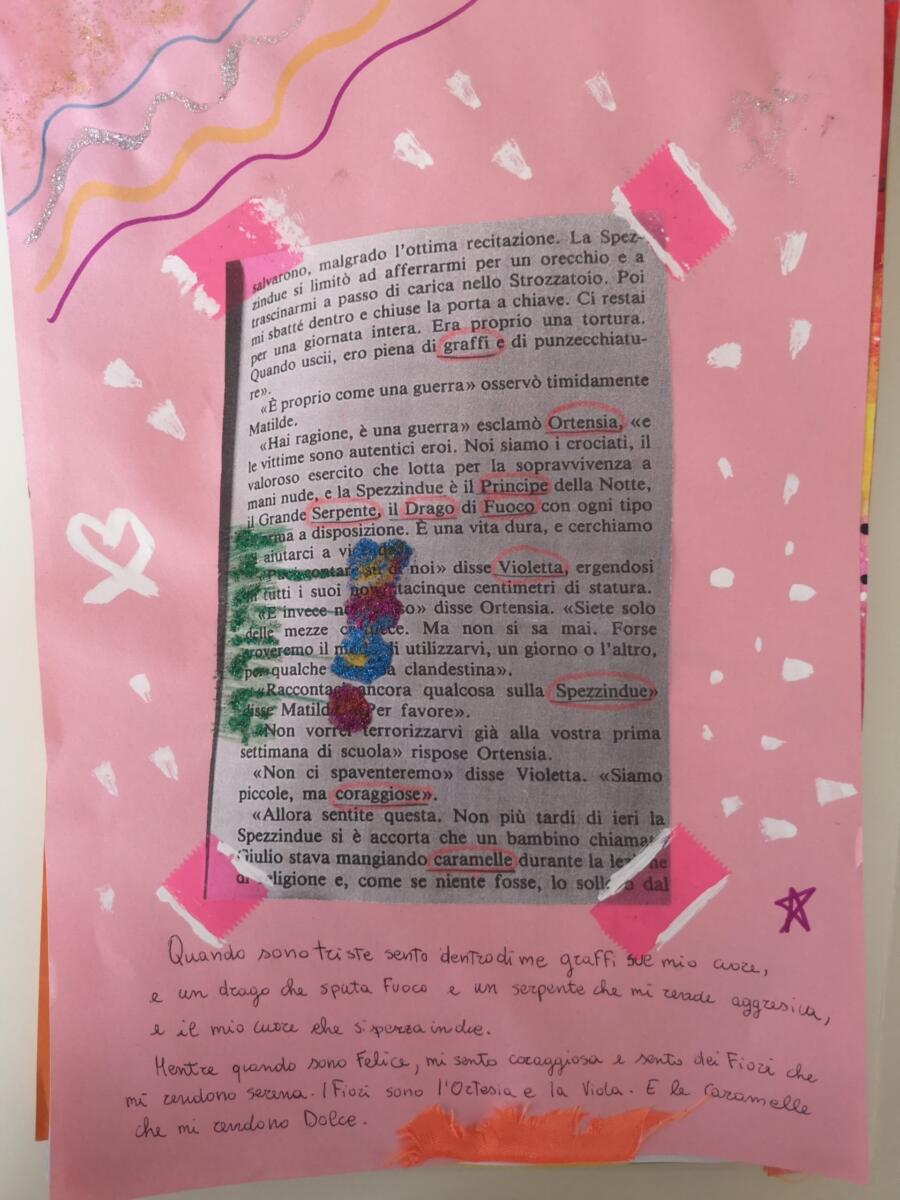 salvarono, malgrado l'ottima recitazione. La Spez-
zindue si limitò ad afferrarmi per un orecchio e a
trascinarmi a passo di carica nello Strozzatoio. Poi
mi sbatté dentro e chiuse la porta a chiave. Ci restai
per una giornata intera. Era proprio una tortura.
Quando uscii, ero piena di graffi e di punzecchiatu-
re».
«È proprio come una guerra» osservò timidamente
Matilde.
«Hai ragione, è una guerra» esclamò Ortensia, «e
le vittime sono autentici eroi. Noi siamo i crociati, il
valoroso esercito che lotta per la sopravvivenza a
mani nude, e la Spezzindue è il Principe della Notte,
il Grande Serpente, il Drago di Fuoco con ogni tipo
arma a disposizione. È una vita dura, e cerchiamo
aiutarci a
noi» disse Violetta, ergendosi
tutti i suoi centimetri di statura.
«E invece disse Ortensia. «Siete solo
delle mezze Ma non si sa mai. Forse
troveremo il di utilizzarvi, un giorno o l'altro,
per qualche clandestina».
«Raccontaci ancora qualcosa sulla Spezzindue»
disse Matilde. «Per favore».
«Non vorrei terrorizzarvi già alla vostra prima
settimana di scuola» rispose Ortensia.
«Non ci spaventeremo» disse Violetta. «Siamo
piccole, ma coraggiose».
«Allora sentite questa. Non più tardi di ieri la
Spezzindue si è accorta che un bambino chiamato
Giulio stava mangiando caramelle durante la lezione
di religione e, come se niente fosse, lo sollevò dal
Quando sono triste sento dentro di me graffi sue mio cuore,
e un drago che sputa Fuoco e un serpente che mi rende aggresiva,
e il mio cuore che si spezza in due.
Mentre quando sono Felice, mi sento coraggiosa e sento dei Fiori che
mi rendono serena. I Fiori sono l'Ortesia e la Viola. E le caramelle
che mi rendono Dolce.